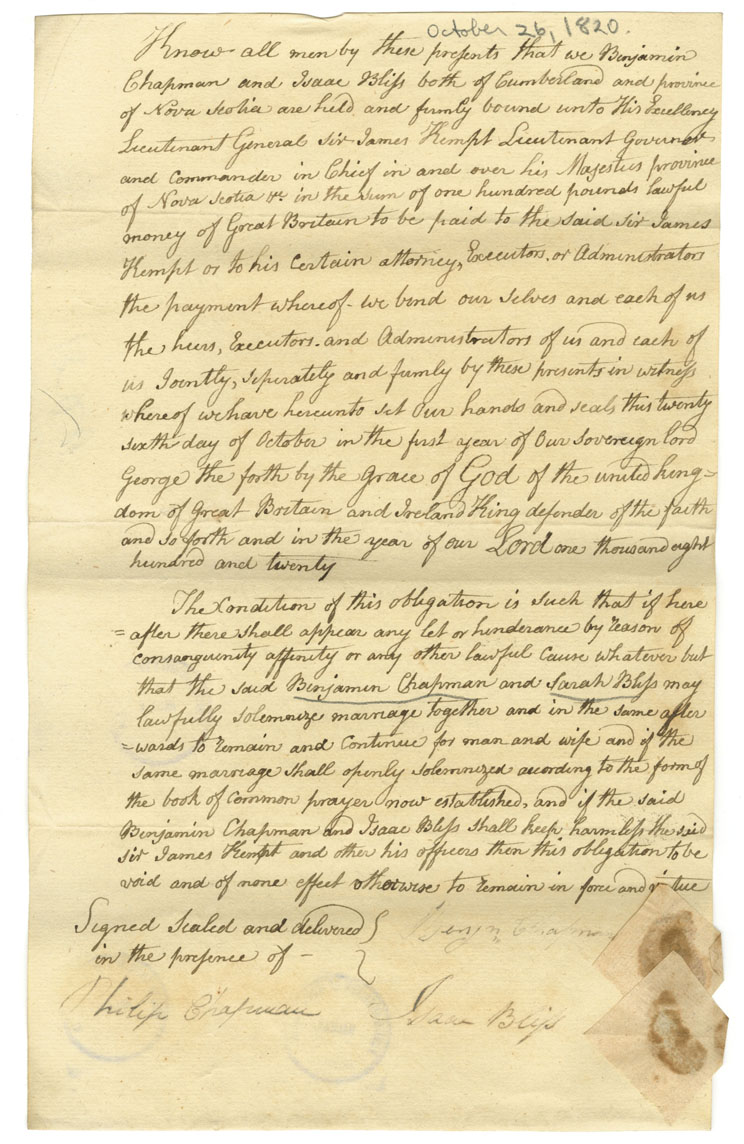 October 26, 1820.
Know all men by these presents that we Binjamin
Chapman and Isaac Bliss both of Cumberland and province
of Nova Scotia are held and firmly bound unto His Excellency
Lieutenant General Sir James Kempt Lieutenant Governor
and Commander in Chief in and over his Majesties province
of Nova Scotia &c in the sum of one hundred pounds lawful
money of Great Britain to be paid to the said Sir James
Kempt or to his Certain attorney, Executors, or Administrators
the payment whereof we bind our selves and each of us
the heirs, Executors and Administrators of us and each of
us Jointly, Seperately and firmly by these presents in witness
whereof we have hereunto set Our hands and seals this twenty
sixth day of October in the first year of Our Sovereign lord
George the forth by the grace of God of the united King=
dom of Great Britain and Ireland King defender of the faith
and so forth and in the year of our Lord one thousand eight
hundred and twenty
The Condition of this obligation is such that if here
=after there shall appear any let or hinderance by reason of
consanguinity affinity or any other lawful Cause whatever but
that the said Binjamin Chapman and Sarah Bliss may
lawfully solemnize marriage together and in the same after
=wards to remain and Continue for man and wife and if the
same marriage shall openly solemnized according to the form of
the book of Common prayer now established, and if the said
Binjamin Chapman and Isaac Bliss shall keep harmless the said
Sir James Kempt and other his officers then this obligation to be
void and of none effect otherwise to remain in force and virtue
Signed Sealed and delivered } Benjn Chapman
in the presence of -
Philip Chapman Isaac Bliss